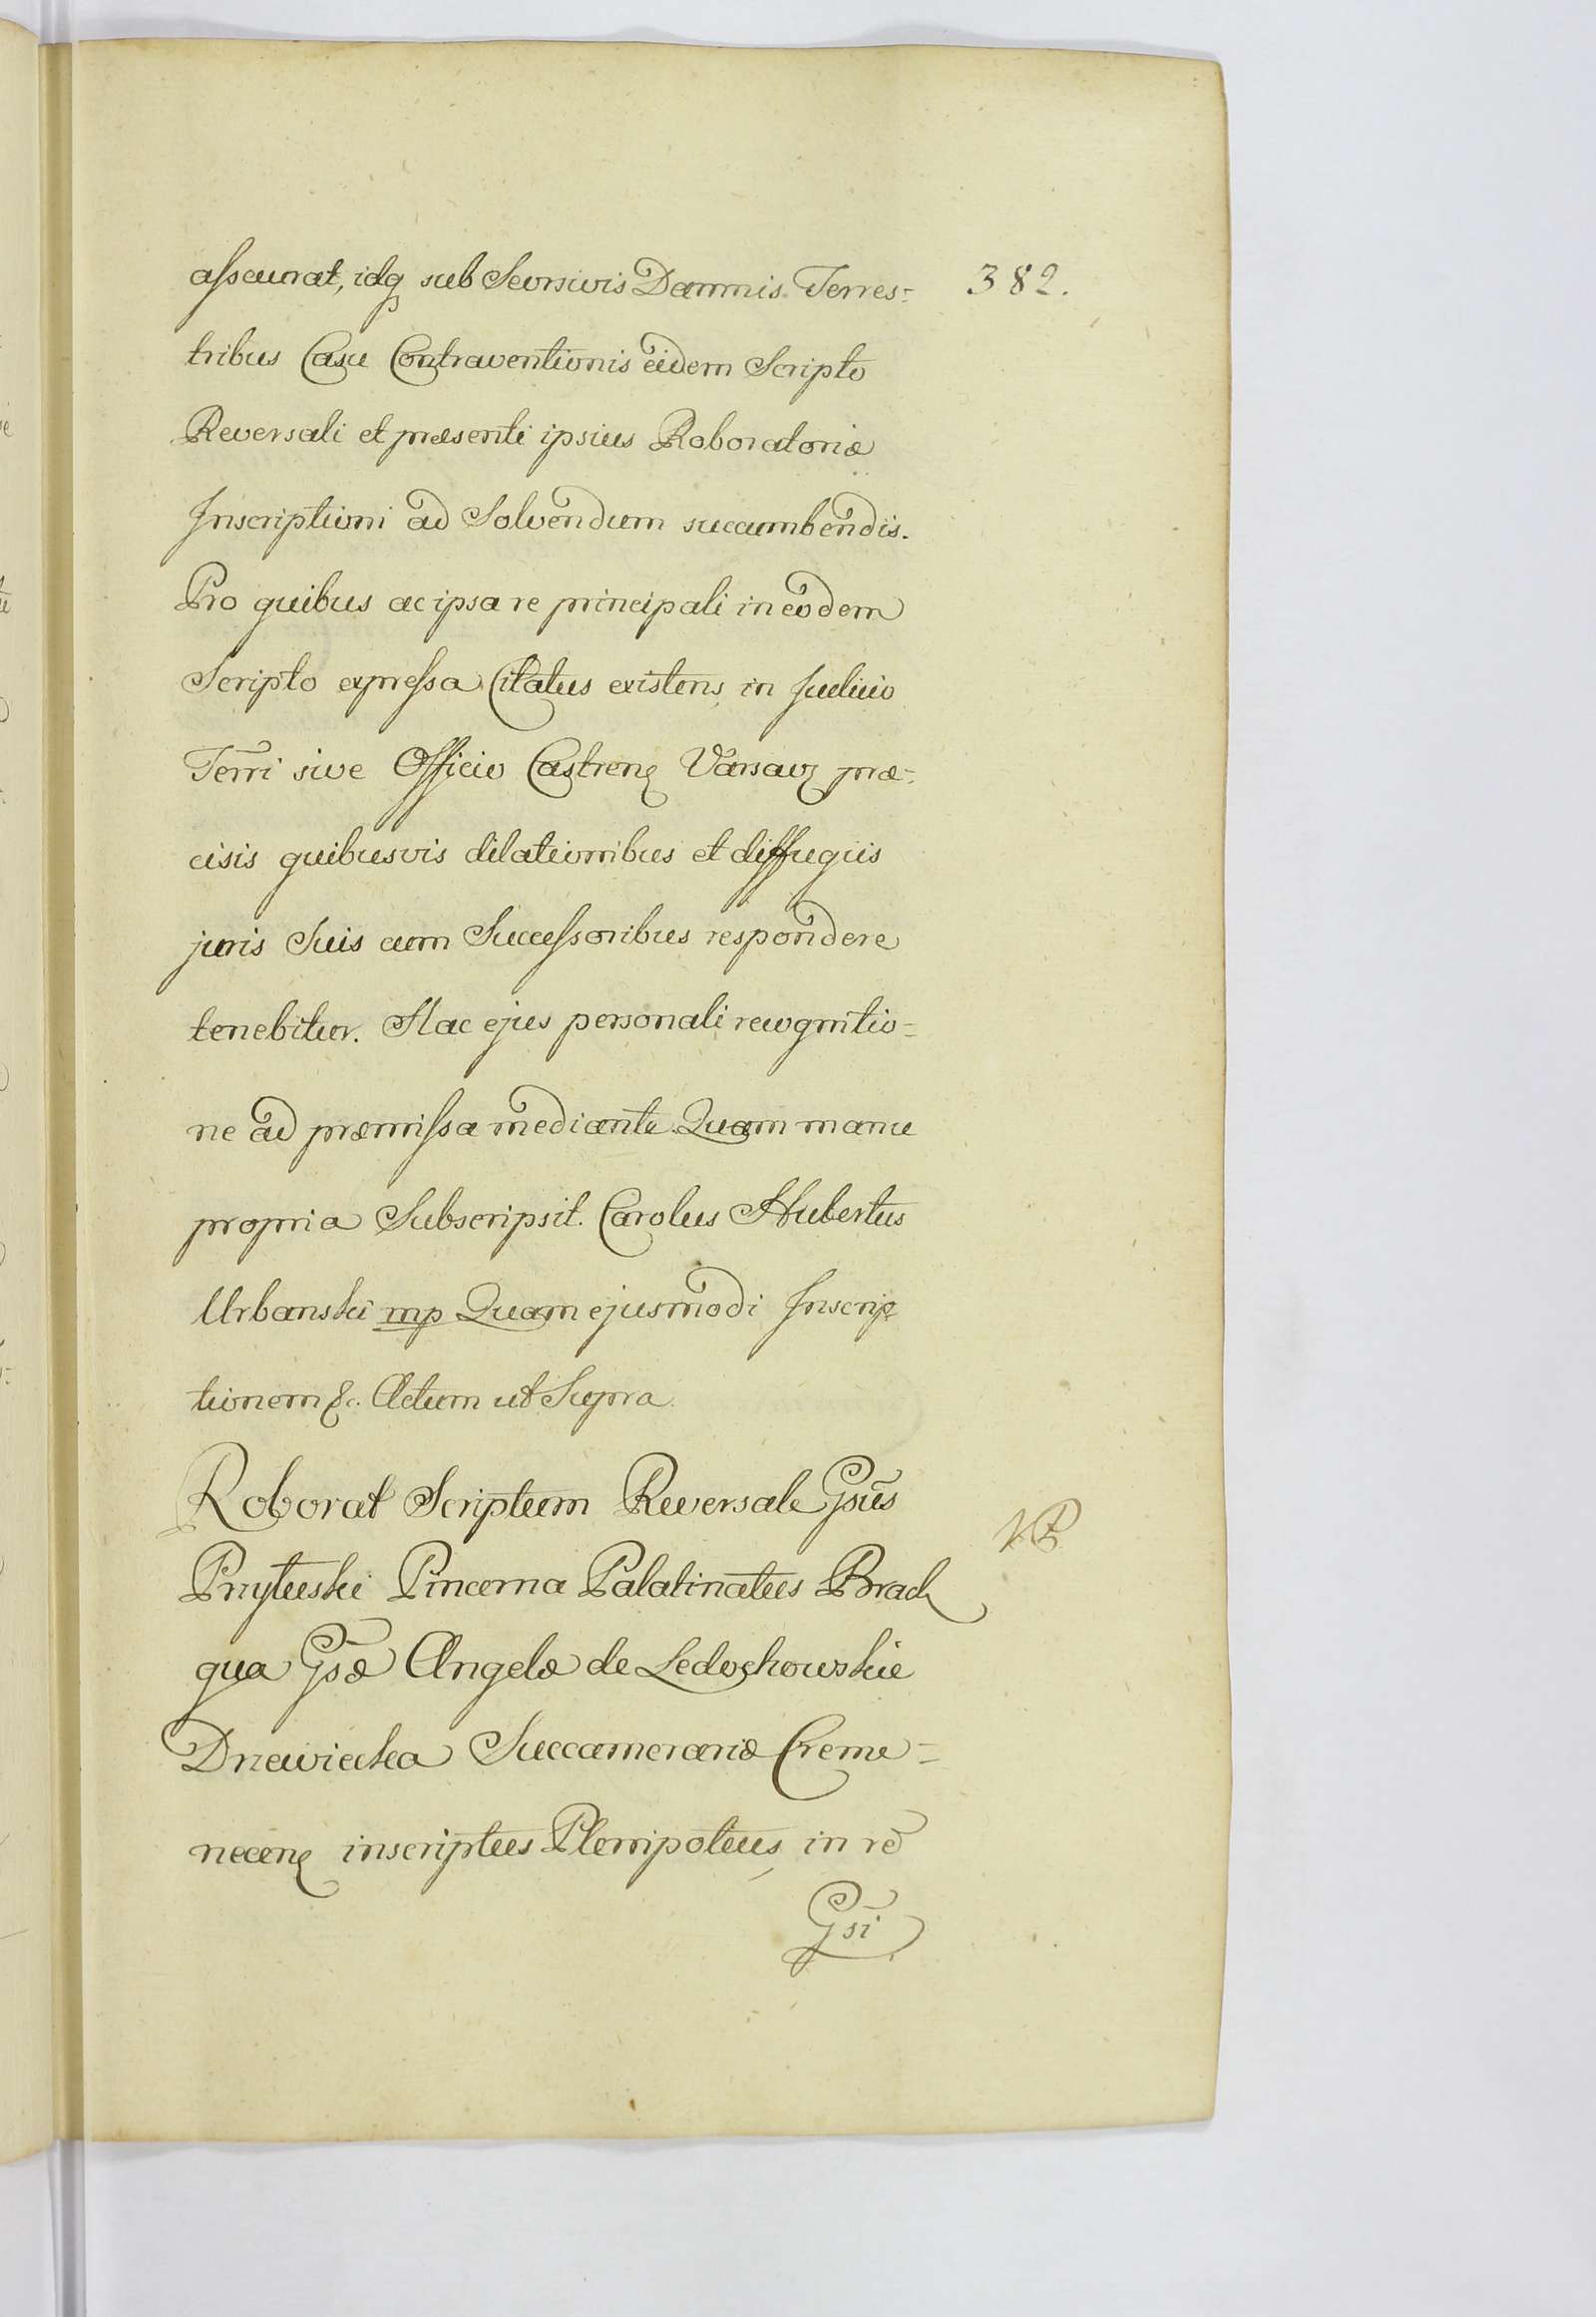 assecurat, idq₃ sub Seorsivis Damnis Terres=
382.
tribus Casu Contraventionis eidem Scripto
Reversali et præsenti ipsius Roboratoriæ
Inscriptioni ad Solvendum succumbendis.
Pro quibus ac ipsa re principali in eodem
Scripto expressa Citatus existens, in Judicio
Terri sive Officio Castren̄ Varsav̄ præ=
cisis quibusvis dilationibus et diffugiis
juris Suis cum Successoribus respondere
tenebitur. Hac ejus personali recognitio=
ne ad præmissa mediante. Quam manu
propria Subscripsit. Carolus Hubertus
Urbanski mp Quam ejusmodi Inscrip
tionem &c. Actum ut Supra
Roborat Scriptum Reversale Gsus
Przyłuski Pincerna Palatinatus Bracł
qua Gsæ Angelæ de Ledochowskie
Drzewiecka Succamerariæ Creme=
necen̄ inscriptus Plenipotens, in re
Gsi